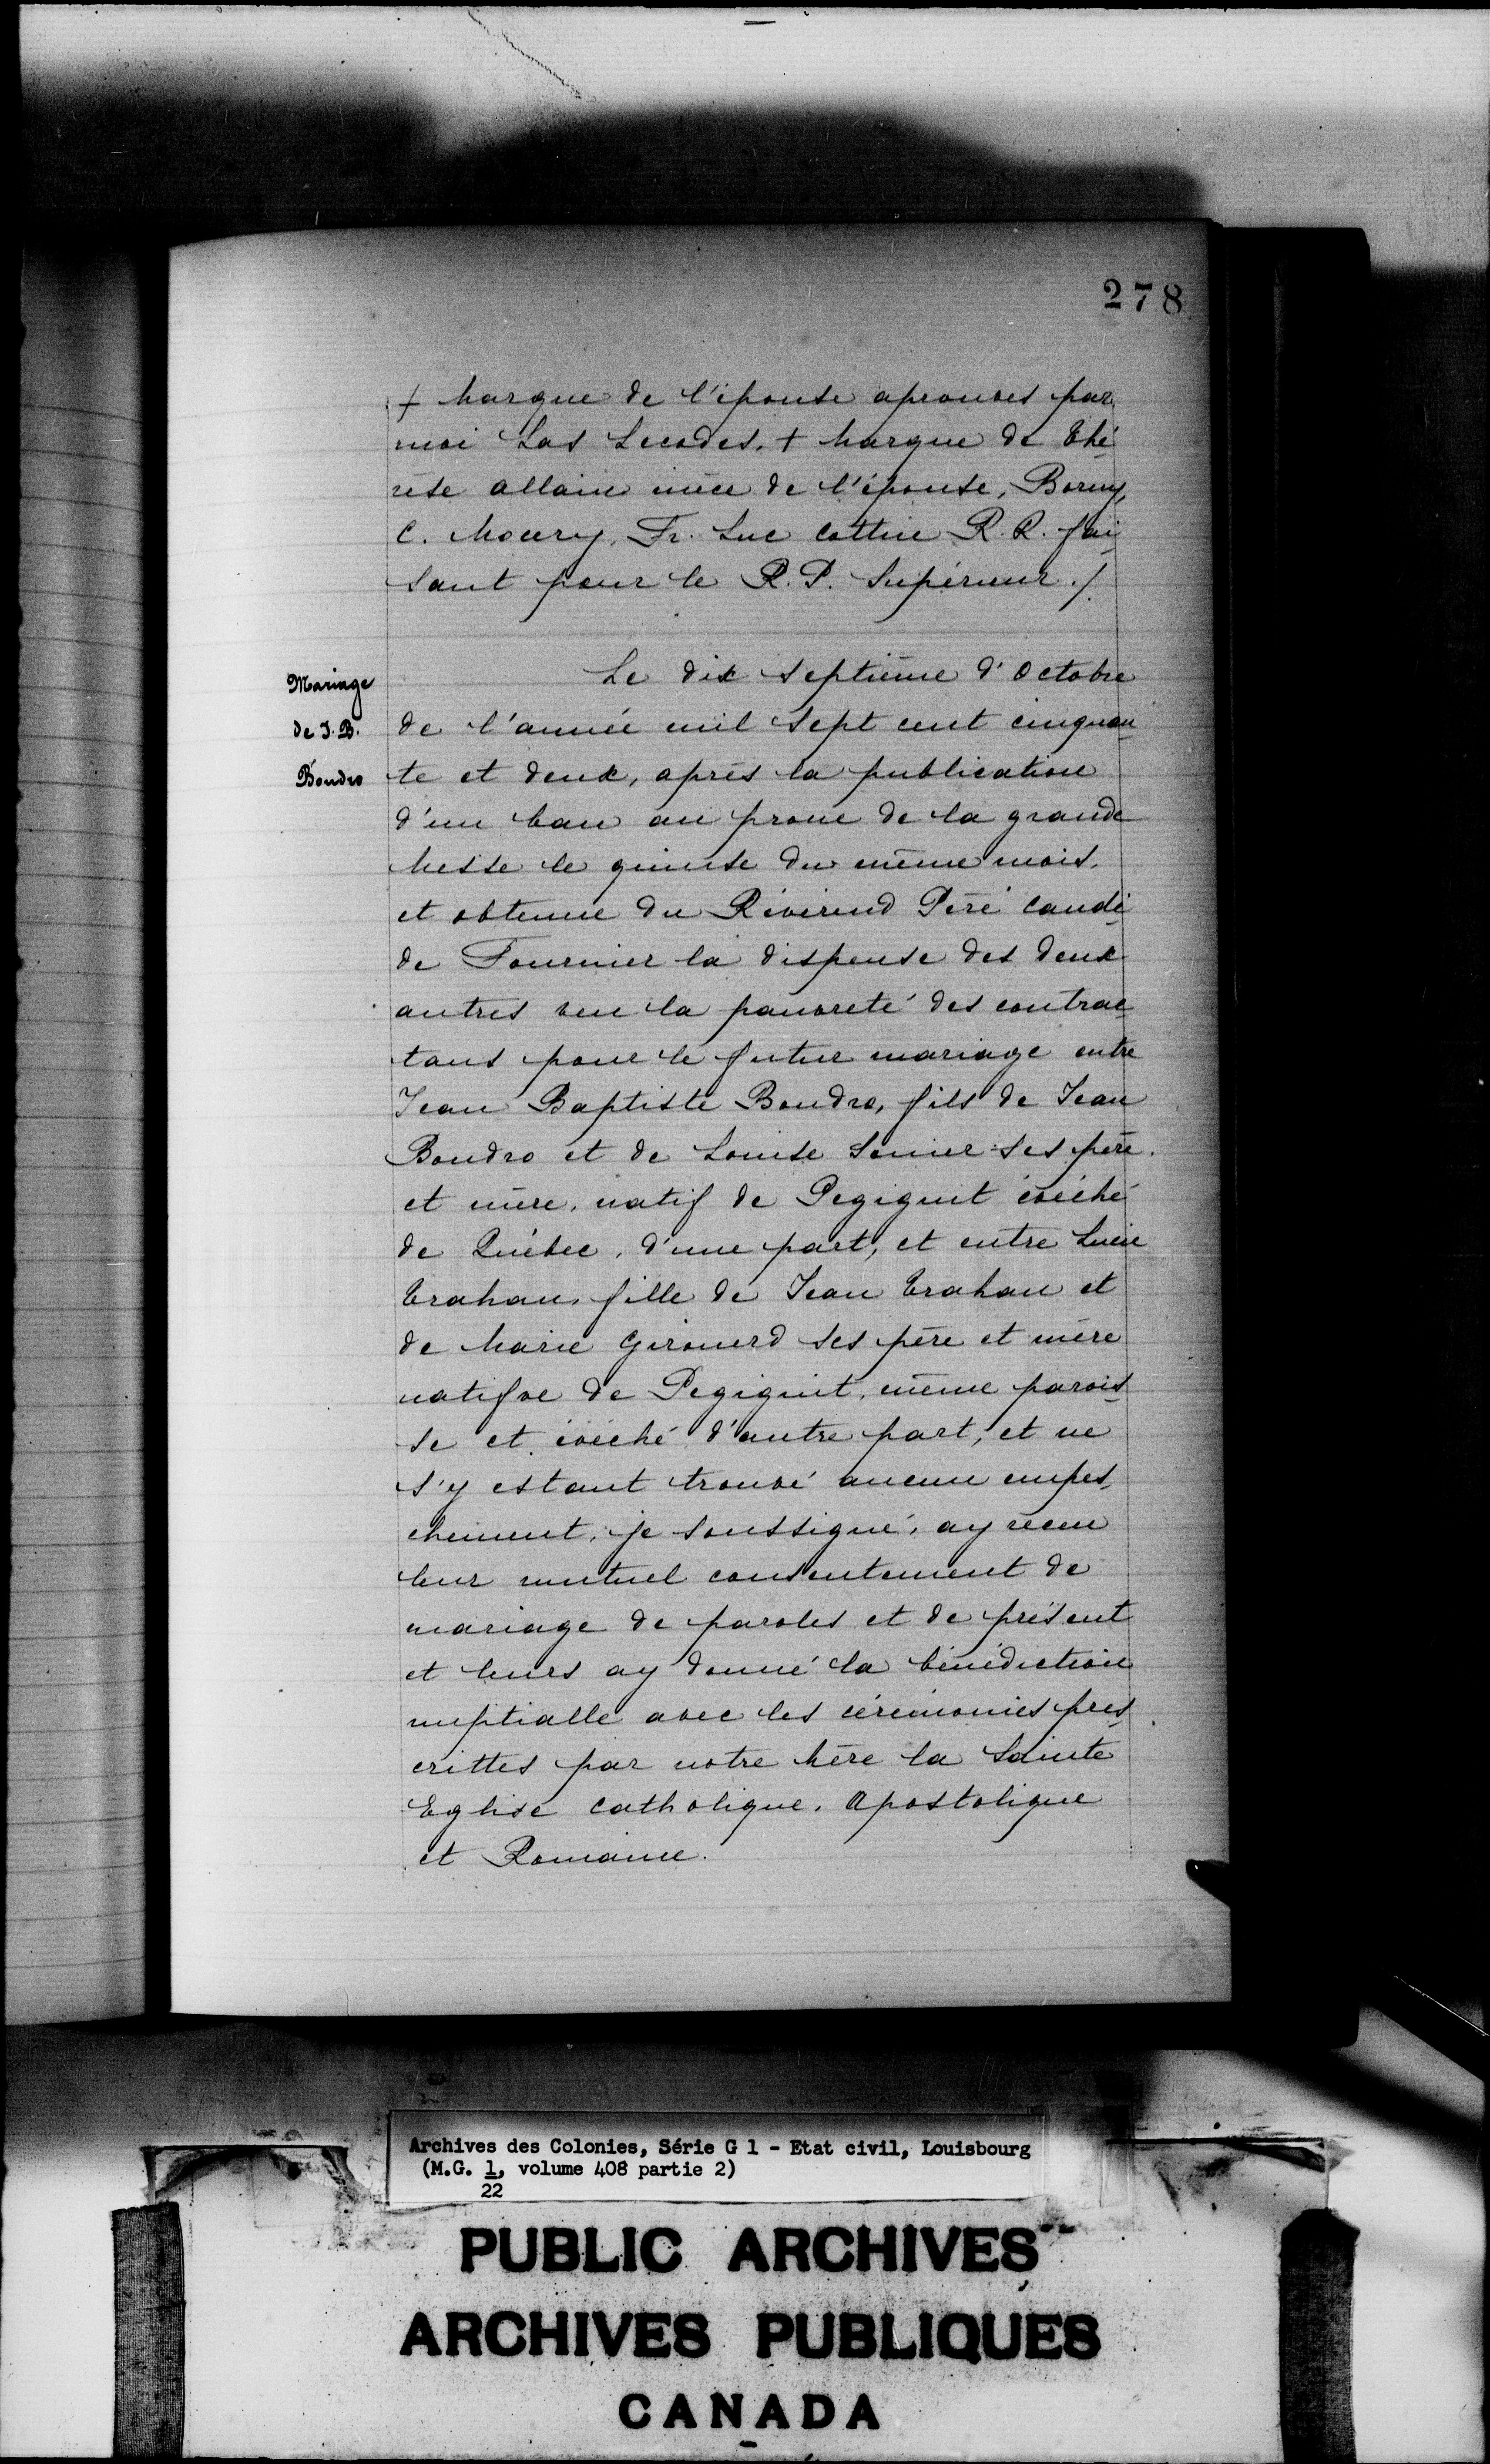 278
+ Marque de l'épouse aprouvés par
moi Las Lecodes. + Marque de Thé
rèse allain mère de l'épouse, Borny,
C. Moury, Fr. Luc Cottin R. R. fai
sant pour le R. P. Supérieur./
Mariage
de J. B.
Boudro
Le dix septième d'Octobre
de l'année mil sept cent cinquan
te et deux, après la publication
d'un ban au prone de la grande
Messe le quinse du même mois.
et obtenue du Révérend Père Candi
de Fournier la dispense des deux
autres veu la pauvreté des contrac
tans pour le futur mariage entre
Jean Baptiste Boudro, fils de Jean
Boudro et de Louise Senier ses père
et mère, natif de Pegiguit évêché
de Québec, d'une part, et entre Lucie
Trahan, fille de Jean Trahan et
de Marie Girouerd ses père et mère
natifve de Pegiguit, même parois
se et évêché d'autre part, et ne
s'y estant trouvé aucun empes
chement, je soussigné, ay receu
leur mutuel consentement de
mariage de paroles et de présent
et leurs ay donné la bénédiction
nuptialle avec les cérémonies pres
crittes par notre Mère la Sainte
Eglise Catholique. Apostolique
et Romaine.
Archives des Colonies, Série G 1 - Etat civil, Louisbourg
(M.G. 1, volume 408 partie 2)
22
PUBLIC ARCHIVES
ARCHIVES PUBLIQUES
CANADA